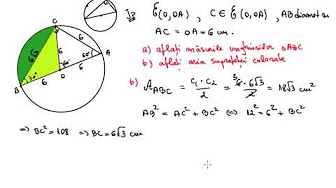 C
ℰ(O,OA) , C ∈ ℰ(O,OA) , AB diametru
AC = OA = 6 cm.
a) aflați măsurile unghiurilor ΔABC
b) aflați aria suprafeței colorate
6√3
6
6
A
60°
30°
B
6
O
6
b) A ABC = c₁·c₂/2 = 6·6√3/2 = 18√3 cm²
AB² = AC² + BC² ⇔ 12² = 6² + BC²
⇒ BC² = 108 ⇒ BC = 6√3 cm